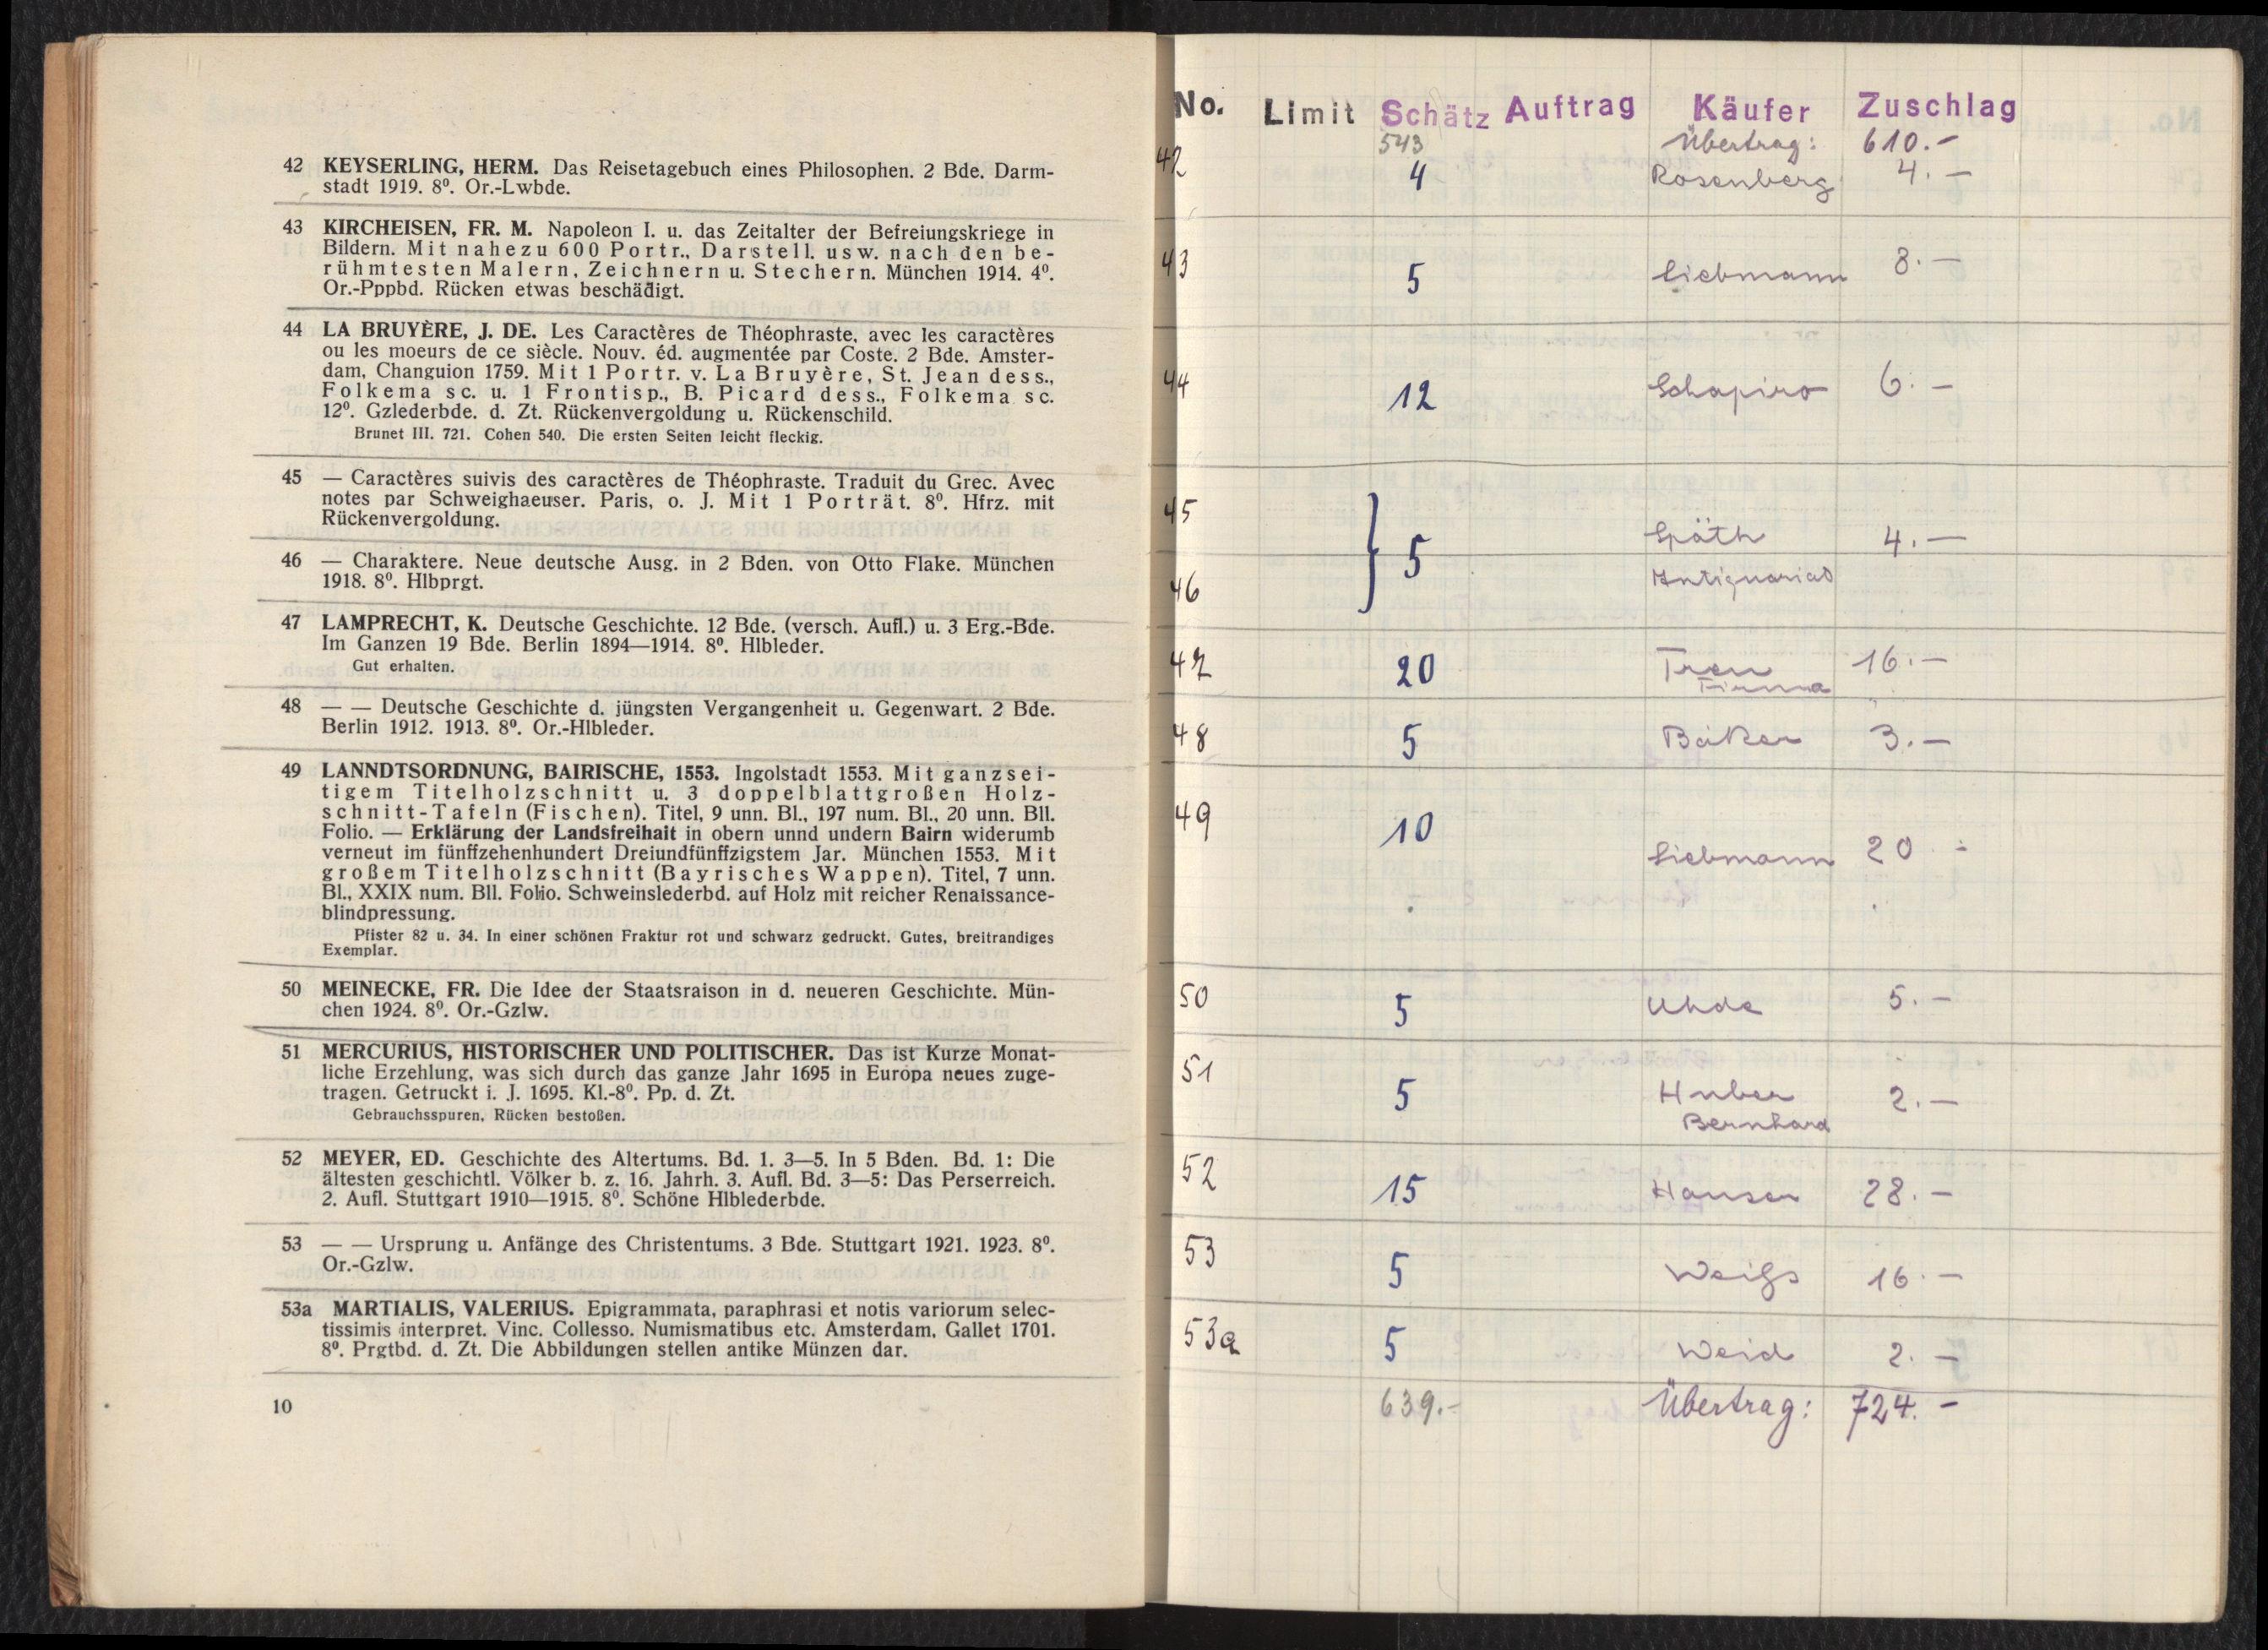 42 KEYSERLING, HERM. Das Reisetagebuch eines Philosophen. 2 Bde. Darm-
stadt 1919. 8⁰. Or.-Lwbde.
43 KIRCHEISEN, FR. M. Napoleon I. u. das Zeitalter der Befreiungskriege in
Bildern. Mit nahezu 600 Portr., Darstell. usw. nach den be-
rühmtesten Malern, Zeichnern u. Stechern. München 1914. 4⁰.
Or.-Pppbd. Rücken etwas beschädigt.
44 LA BRUYÈRE, J. DE. Les Caractères de Théophraste, avec les caractères
ou les moeurs de ce siècle. Nouv. éd. augmentée par Coste. 2 Bde. Amster-
dam, Changuion 1759. Mit 1 Portr. v. La Bruyère, St. Jean dess.,
Folkema sc. u. 1 Frontisp., B. Picard dess., Folkema sc.
12⁰. Gzlederbde. d. Zt. Rückenvergoldung u. Rückenschild.
Brunet III. 721. Cohen 540. Die ersten Seiten leicht fleckig.
45 — Caractères suivis des caractères de Théophraste. Traduit du Grec. Avec
notes par Schweighaeuser. Paris, o. J. Mit 1 Porträt. 8⁰. Hfrz. mit
Rückenvergoldung.
46 — Charaktere. Neue deutsche Ausg. in 2 Bden. von Otto Flake. München
1918. 8⁰. Hlbprgt.
47 LAMPRECHT, K. Deutsche Geschichte. 12 Bde. (versch. Aufl.) u. 3 Erg.-Bde.
Im Ganzen 19 Bde. Berlin 1894—1914. 8⁰. Hlbleder.
Gut erhalten.
48 — — Deutsche Geschichte d. jüngsten Vergangenheit u. Gegenwart. 2 Bde.
Berlin 1912. 1913. 8⁰. Or.-Hlbleder.
49 LANNDTSORDNUNG, BAIRISCHE, 1553. Ingolstadt 1553. Mit ganzsei-
tigem Titelholzschnitt u. 3 doppelblattgroßen Holz-
schnitt-Tafeln (Fischen). Titel, 9 unn. Bl., 197 num. Bl., 20 unn. Bll.
Folio. — Erklärung der Landsfreihait in obern unnd undern Bairn widerumb
verneut im fünffzehenhundert Dreiundfünffzigstem Jar. München 1553. Mit
großem Titelholzschnitt (Bayrisches Wappen). Titel, 7 unn.
Bl., XXIX num. Bll. Folio. Schweinslederbd. auf Holz mit reicher Renaissance-
blindpressung.
Pfister 82 u. 34. In einer schönen Fraktur rot und schwarz gedruckt. Gutes, breitrandiges
Exemplar.
50 MEINECKE, FR. Die Idee der Staatsraison in d. neueren Geschichte. Mün-
chen 1924. 8⁰. Or.-Gzlw.
51 MERCURIUS, HISTORISCHER UND POLITISCHER. Das ist Kurze Monat-
liche Erzehlung, was sich durch das ganze Jahr 1695 in Europa neues zuge-
tragen. Getruckt i. J. 1695. Kl.-8⁰. Pp. d. Zt.
Gebrauchsspuren, Rücken bestoßen.
52 MEYER, ED. Geschichte des Altertums. Bd. 1. 3—5. In 5 Bden. Bd. 1: Die
ältesten geschichtl. Völker b. z. 16. Jahrh. 3. Aufl. Bd. 3—5: Das Perserreich.
2. Aufl. Stuttgart 1910—1915. 8⁰. Schöne Hlblederbde.
53 — — Ursprung u. Anfänge des Christentums. 3 Bde. Stuttgart 1921. 1923. 8⁰.
Or.-Gzlw.
53a MARTIALIS, VALERIUS. Epigrammata, paraphrasi et notis variorum selec-
tissimis interpret. Vinc. Collesso. Numismatibus etc. Amsterdam, Gallet 1701.
8⁰. Prgtbd. d. Zt. Die Abbildungen stellen antike Münzen dar.
10
No. Limit Schätz Auftrag Käufer Zuschlag
543 Übertrag: 610.-
42 4 Rosenberg 4.—
43 5 Liebmann 8.—
44 12 Schapiro 6.—
45 Späth 4.—
5
46 Antiquariat
47 20 Treu 16.—
Firma
48 5 Bäker 3.—
49 10 Liebmann 20.-
50 5 Uhde 5.—
51 5 Huber 2.—
Bernhard
52 15 Hauser 28.—
53 5 Weiß 16.—
53a 5 Weid 2.—
639.- Übertrag: 724.-